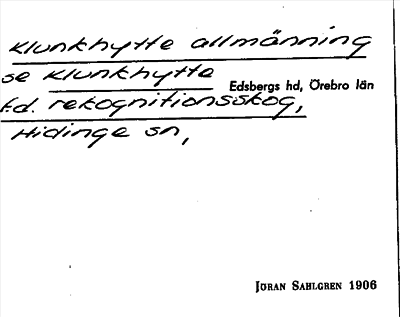 Klunkhytte allmänning
se Klunkhytte
Edsbergs hd, Örebro län
f.d. rekognitionsskog,
Hidinge sn,
JÖRAN SAHLGREN 1906